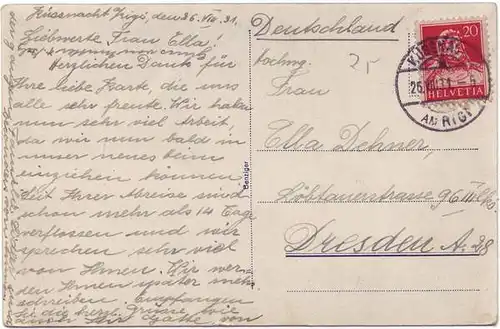 Küssnacht Rigi, den 26. VIII. 31.
Liebwerte Frau Ella!
Herzlichen Dank für
Ihre liebe Karte, die uns
alle sehr freute. Wir haben
nun sehr viel Arbeit,
da wir nun bald in
unser neues Heim
einziehen können.
Seit Ihrer Abreise sind
schon mehr als 14 Tage
verflossen und wir
sprechen sehr viel
von Ihnen. Wir wer-
den Ihnen später mehr
schreiben. Empfangen
Sie die herzl. Grüsse wie
auch Ihr Gatte, von
Benziger
Deutschland
Hochwg.
Frau
Ella Dehner,
Löbtauerstrasse 96 III
Dresden A. 28
25
20
HELVETIA
AM RIGI